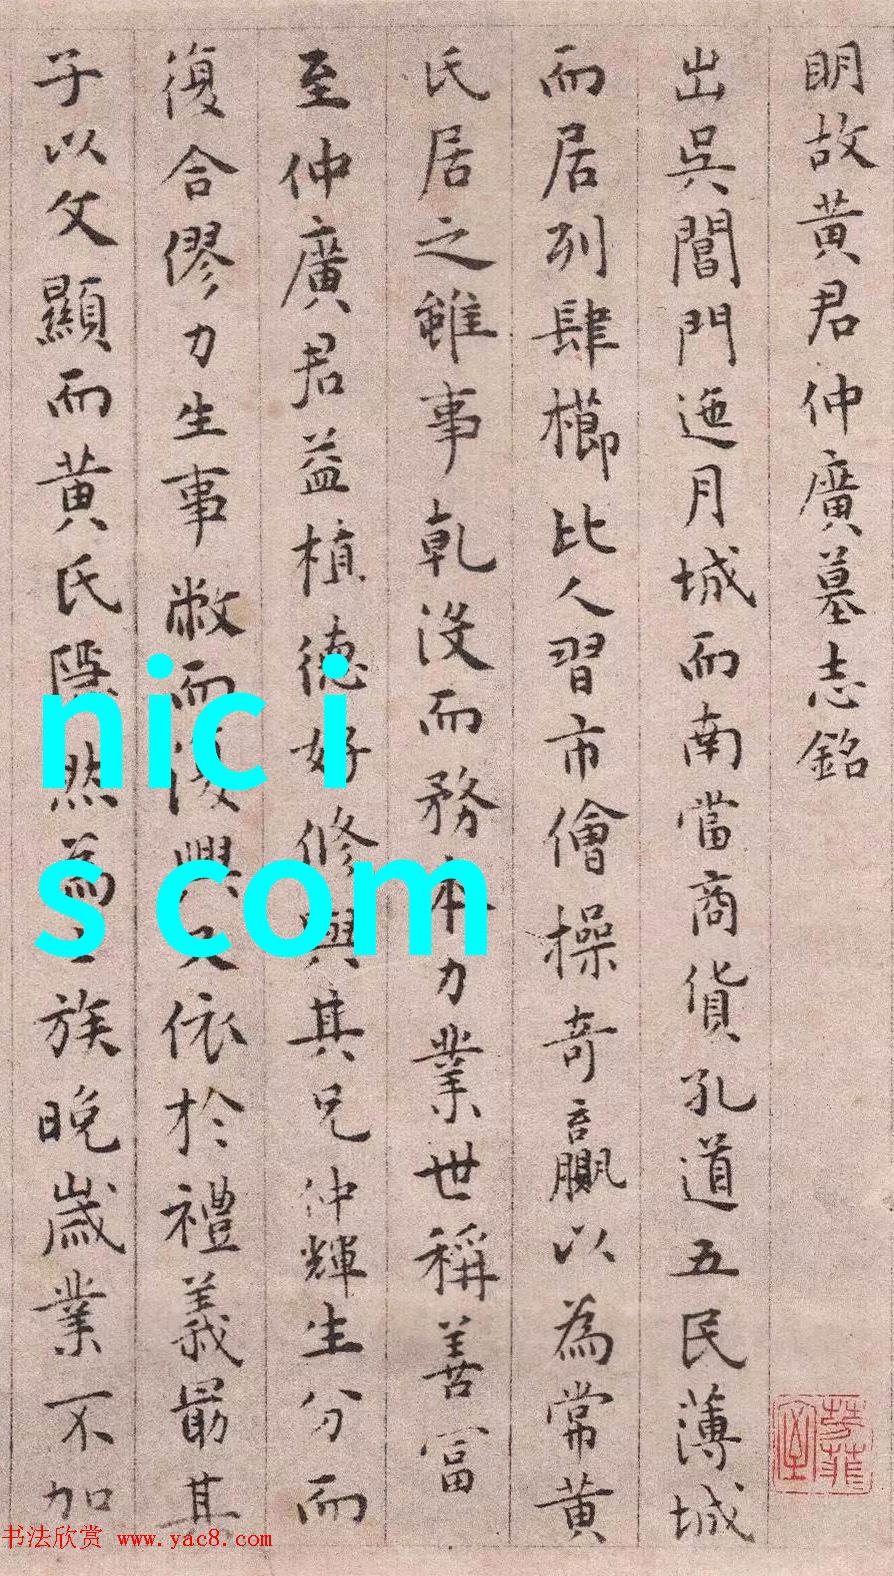 明故黃君仲廣墓志銘
出吳閶門迤月城而南當商貨孔道五民薄城
而居列肆櫛比人習市儈操奇贏以為常黃
氏居之雖事乾沒而務本力業世稱善富
至仲廣君益植德好修與其兄仲輝生分而
復合僇力生事敝而復興又依於禮義最其
子以文顯而黃氏隱然為士族晚歲業不加
nic i
s com
书法欣赏 www.yac8.com